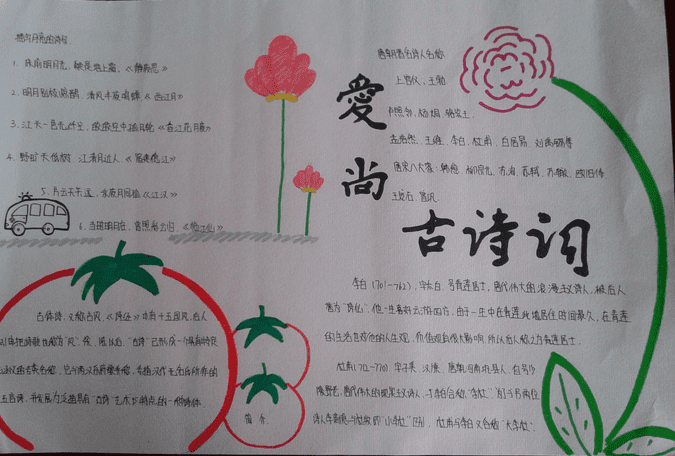 描写月亮的诗句
1. 床前明月光，疑是地上霜。《静夜思》
2. 明月别枝惊鹊，清风半夜鸣蝉《西江月》
3. 江天一色无纤尘，皎皎空中孤月轮《春江花月夜》
4. 野旷天低树，江清月近人。《宿建德江》
5. 片云天共远，永夜月同孤《江汉》
6. 当时明月在，曾照彩云归。《临江仙》
愛尚
古诗词
唐朝著名诗人名称
上官仪，王勃
卢照邻，杨炯，骆宾王
孟浩然，王维，李白，杜甫，白居易，刘禹锡等
唐宋八大家：韩愈，柳宗元，苏洵，苏轼，苏辙，欧阳修
王安石，曾巩
李白（701-762），字太白，号青莲居士，唐代伟大的浪漫主义诗人，被后人
誉为"诗仙"。他一生喜好云游四方，由于一生中在青莲此地居住的时间最久，在青莲
的生活也对他的人生观，价值观有很大影响，所以后人称之为青莲居士。
杜甫（712-770），字子美，汉族，唐朝河南巩县人，自号少
陵野老，唐代伟大的现实主义诗人，与李白合称"李杜"。为了与两位
诗人李商隐与杜牧即"小李杜"区别，杜甫与李白又合称"大李杜"。
古体诗，又称古风，《诗经》中有十五国风，后人
五言诗，
简介